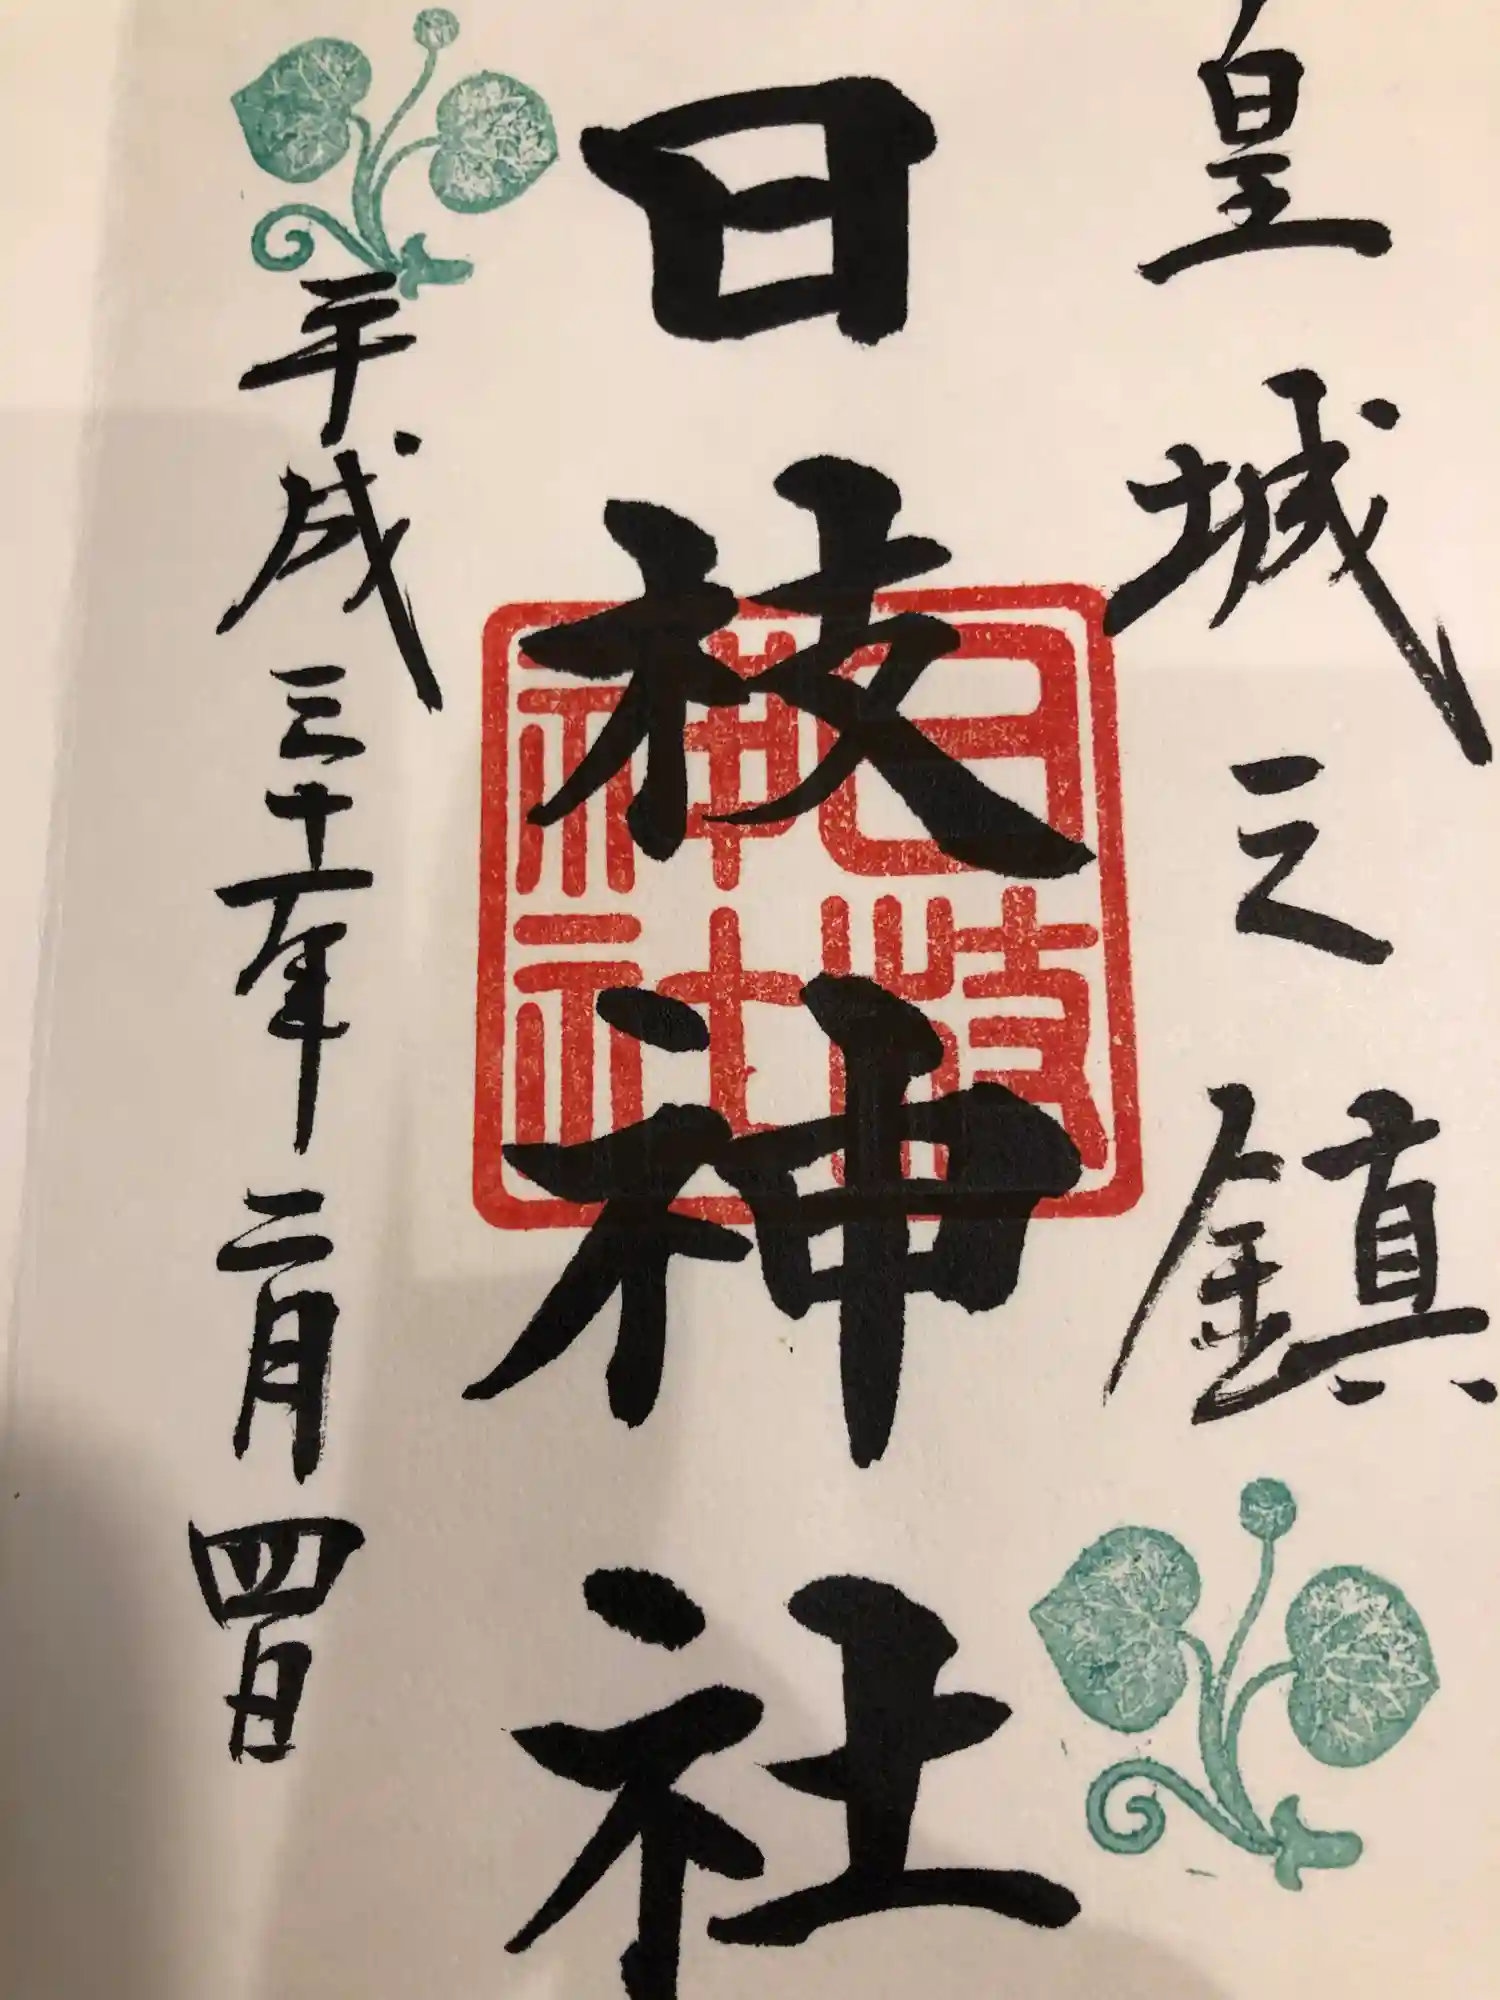 皇城之鎮
日枝神社
日枝
神社
平成三十一年二月四日